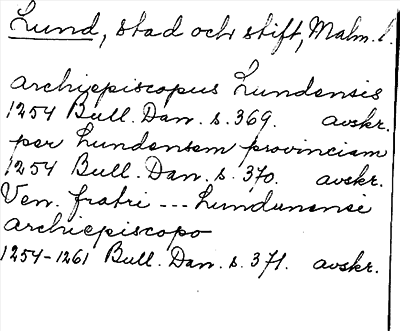 Lund, stad och stift, Malm. l.
archiepiscopus Lundensis
1254 Bull. Dan. s. 369. avskr.
per Lundensem provinciam
1254 Bull. Dan. s. 370. avskr.
Ven. fratri --- Lundunensi
archiepiscopo
1254-1261 Bull. Dan. s. 371. avskr.